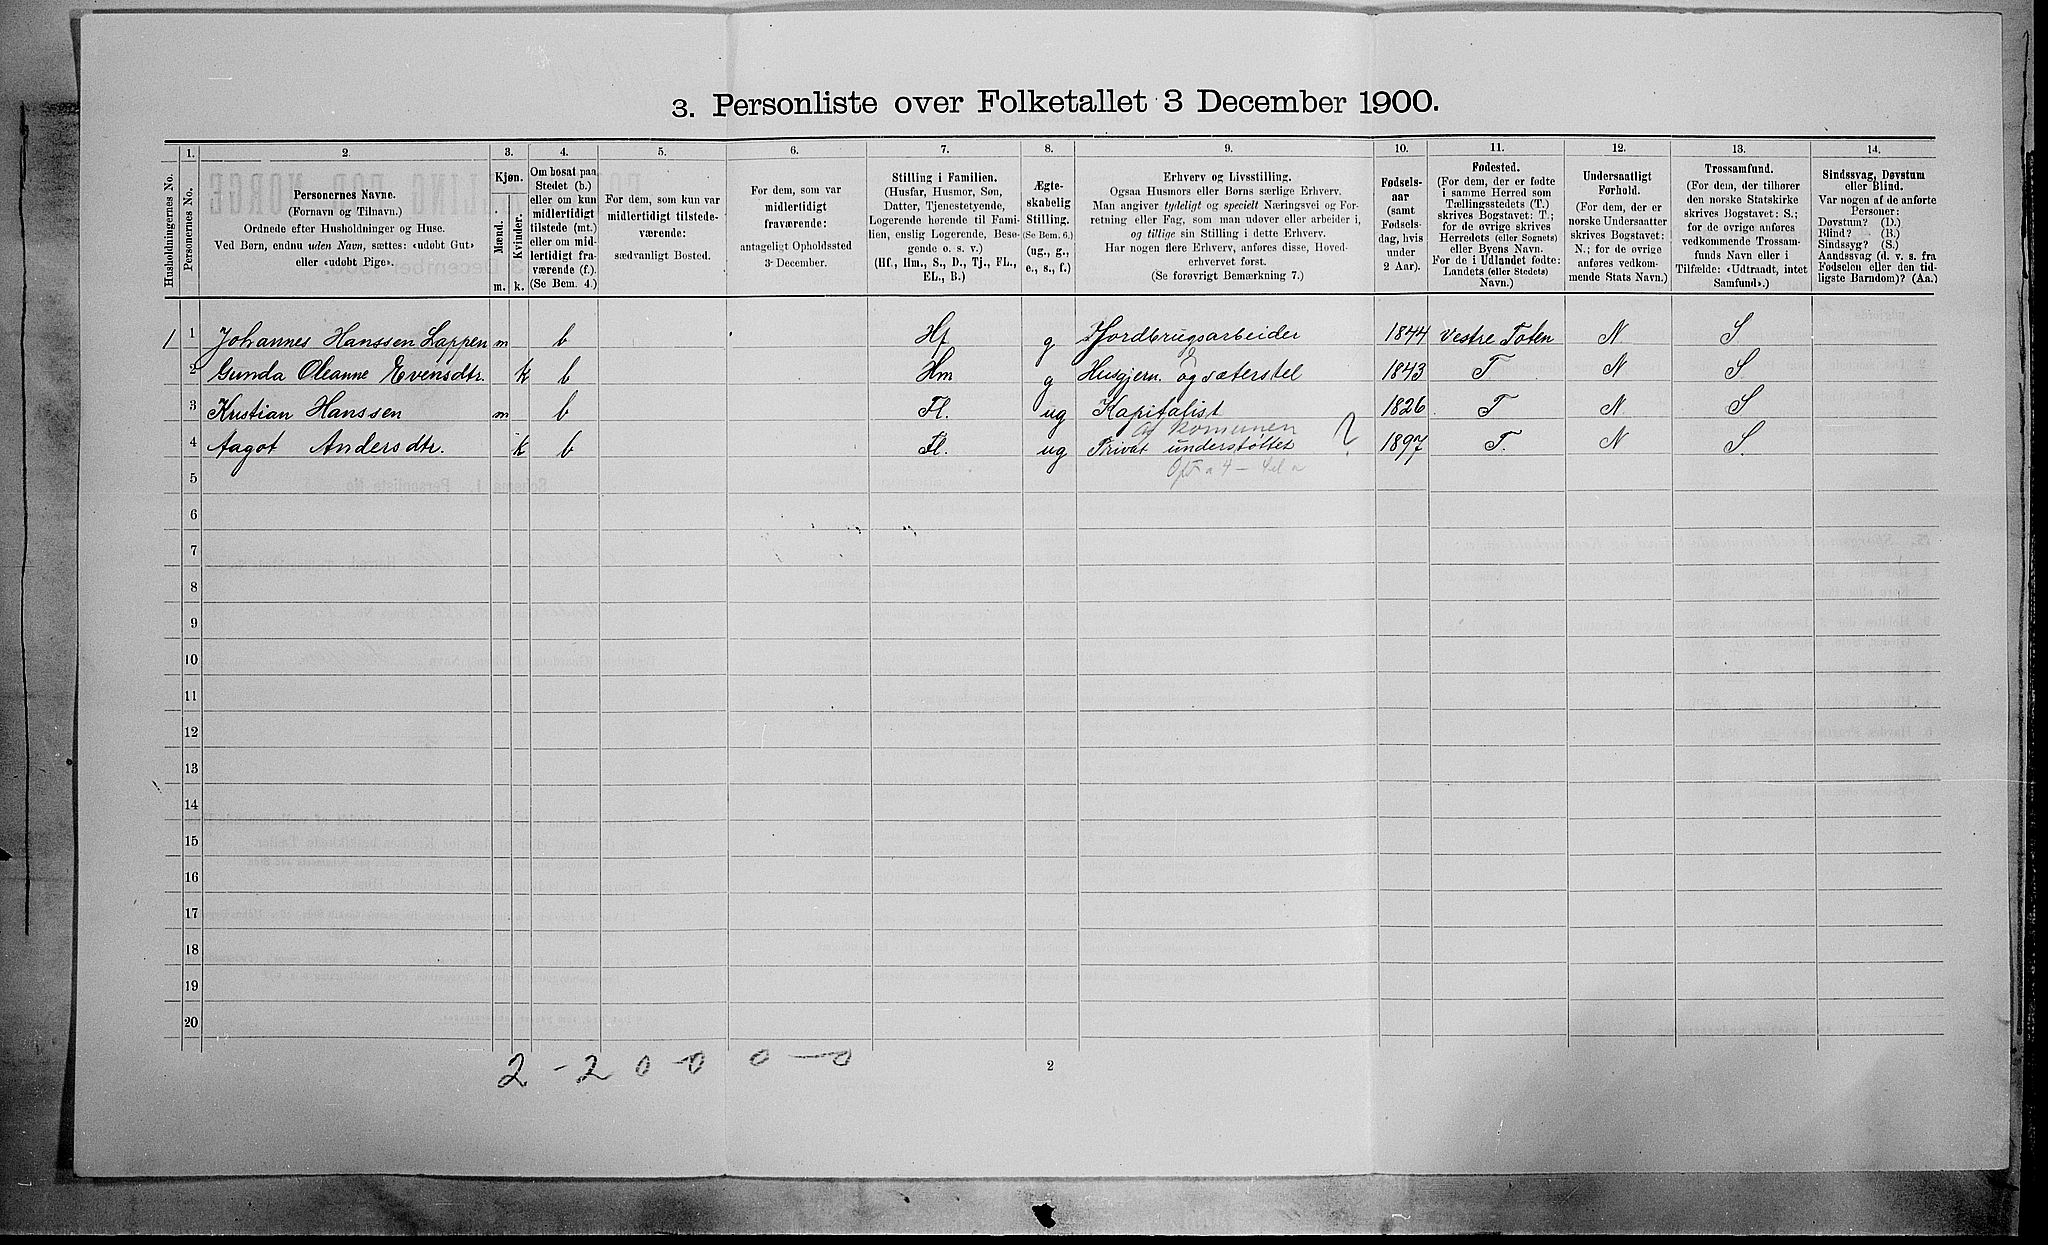 3. Personliste over Folketallet 3 December 1900.
1. 2. 3. 4. 5. 6. 7. 8. 9. 10. 11. 12. 13. 14.
Husholdningernes No.
Personernes No.
Personernes Navne.
(Fornavn og Tilnavn.)
Ordnede efter Husholdninger og Huse.
Ved Børn, endnu uden Navn, sættes: «udøbt Gut»
eller «udøbt Pige».
Kjøn.
Mænd. Kvinder.
m. k.
Om bosat paa
Stedet (b.)
eller om kun
midlertidigt
tilstede (mt.)
eller om mid-
lertidigt fra-
værende (f.).
(Se Bem. 4.)
For dem, som kun var
midlertidigt tilstede-
værende:
sædvanligt Bosted.
For dem, som var
midlertidigt
fraværende:
antageligt Opholdssted
3 December.
Stilling i Familien.
(Husfar, Husmor, Søn,
Datter, Tjenestetyende,
Logerende hørende til Fami-
lien, enslig Logerende, Besø-
gende o. s. v.)
(Hf., Hm., S., D., Tj., FL.,
EL., B.)
Ægte-
skabelig
Stilling.
(Se Bem. 6.)
(ug., g.,
e., s., f.)
Erhverv og Livsstilling.
Ogsaa Husmors eller Børns særlige Erhverv.
Man angiver tydeligt og specielt Næringsvei og For-
retning eller Fag, som man udøver eller arbeider i,
og tillige sin Stilling i dette Erhverv.
Har nogen flere Erhverv, anføres disse, Hoved-
erhvervet først.
(Se forøvrigt Bemærkning 7.)
Fødsels-
aar
(samt
Fødsels-
dag, hvis
under
2 Aar).
Fødested.
(For dem, der er fødte
i samme Herred som
Tællingsstedets (T.)
skrives Bogstavet: T.;
for de øvrige skrives
Herredets (eller Sognets)
eller Byens Navn.
For de i Udlandet fødte:
Landets (eller Stedets)
Navn.)
Undersaatligt
Forhold.
(For dem, der er
norske Undersaatter
skrives Bogstavet:
N.; for de øvrige
anføres vedkom-
mende Stats Navn.)
Trossamfund.
(For dem, der tilhører
den norske Statskirke
skrives Bogstavet: S.;
for de øvrige anføres
vedkommende Trossam-
funds Navn eller i
Tilfælde: «Udtraadt, intet
Samfund».)
Sindssvag, Døvstum
eller Blind.
Var nogen af de anførte
Personer:
Døvstum? (D.)
Blind? (B.)
Sindssyg? (S.)
Aandssvag (d. v. s. fra
Fødselen eller den tid-
ligste Barndom)? (Aa.)
1 1 Johannes Hanssen Lappen m b Hf g Jordbrugsarbeider 1844 Vestre Toten N S
2 Gunda Oleanne Evensdtr. k b Hm g Husgjern. og sæterstel 1843 T. N S
3 Kristian Hanssen m b Fl. ug Kapitalist 1826 T N S
Af komunen
4 Aagot Andersdtr. k b Fl. ug Privat understøttet ? 1897 T. N S.
5
6
7
8
9
10
11
12
13
14
15
16
17
18
19
20
2 - 2 0 - 0 0 - 0
2